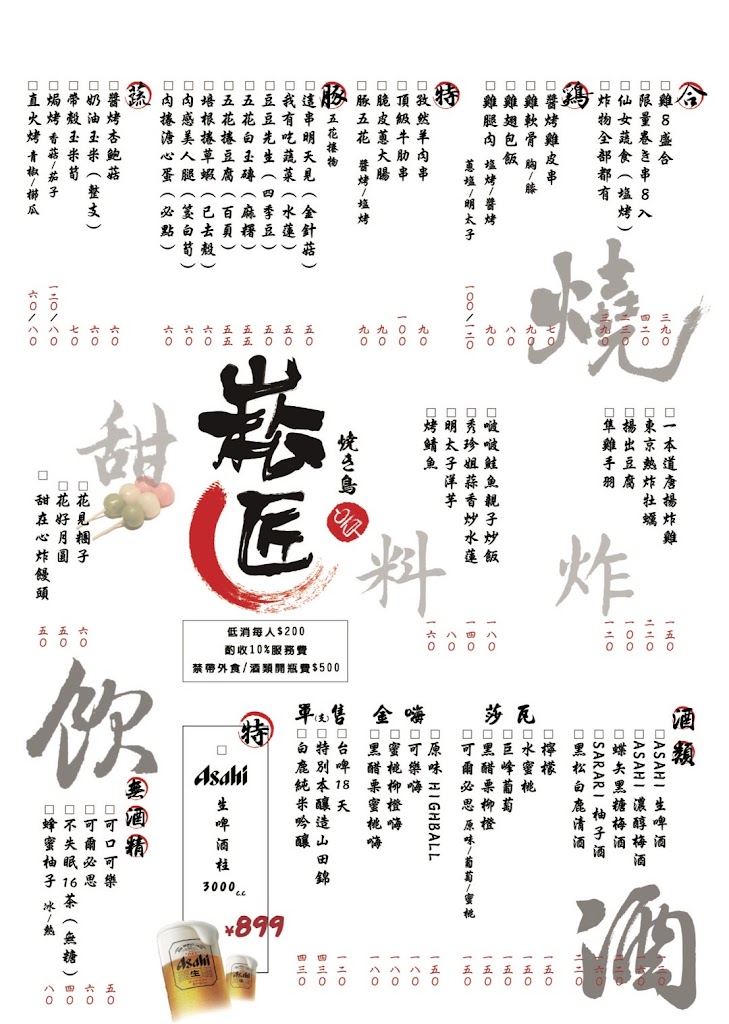 合
□雞8盛合 三九〇
□限量卷き串8入 四二〇
□仙女蔬食(塩烤) 二三〇
□炸物全部都有 三九〇
鷄
□醬烤雞皮串 七〇
□雞軟骨 胸/膝 九〇
□雞翅包飯 八〇
□雞腿肉 塩烤/醬烤 九〇
蔥塩/明太子 一〇〇/一二〇
特
□孜然羊肉串 九〇
□頂級牛肋串 一〇〇
□脆皮蔥大腸 九〇
□豚五花 醬烤/塩烤 九〇
豚 五花捲物
□這串明天見(金針菇) 五〇
□我有吃蔬菜(水蓮) 五〇
□豆豆先生(四季豆) 五〇
□五花白玉磚(麻糬) 五五
□五花捲豆腐(百頁) 五五
□培根捲草蝦(已去殼) 六〇
□內感美人腿(茭白筍) 六〇
□肉捲溏心蛋(必點) 六〇
蔬
□醬烤杏鮑菇 六〇
□奶油玉米(整支) 六〇
□帶殼玉米筍 七〇
□焗烤 香菇/茄子 一二〇/八〇
□直火烤 青椒/櫛瓜 六〇/八〇
燒
炸
□一本道唐揚炸雞 一五〇
□東京熱炸牡蠣 二二〇
□揚出豆腐 一〇〇
□隼雞手羽 一二〇
料
□啵啵鮭魚親子炒飯 一八〇
□秀珍姐蒜香炒水蓮 一四〇
□明太子洋芋 八〇
□烤鯖魚 一六〇
燒き鳥
崧匠
低消每人$200
酌收10%服務費
禁帶外食/酒類開瓶費$500
甜
□花見糰子 六〇
□花好月圓 五〇
□甜在心炸饅頭 五〇
酒
酒類
□ASAHI 生啤酒
□ASAHI 濃醇梅酒
□蝶矢黑糖梅酒
□SARARI 柚子酒
□黑松白鹿清酒 二二〇
莎瓦
□檸檬 一五〇
□水蜜桃 一五〇
□巨峰葡萄 一五〇
□黑醋栗柳橙 一五〇
□可爾必思 原味/葡萄/蜜桃 一五〇
金嗨
□原味HIGHBALL 一五〇
□可樂嗨 一八〇
□蜜桃柳橙嗨 一八〇
□黑醋栗蜜桃嗨 一八〇
單售(支)
□台啤18天 一二〇
□特別本釀造山田錦 四三〇
□白鹿純米吟釀 四三〇
特
□
Asahi
生啤酒柱
3000c.c
¥899
Asahi
生
飲
無酒精
□可口可樂 五〇
□可爾必思 六〇
□不失眠16茶(無糖) 四〇
□蜂蜜柚子 冰/熱 八〇